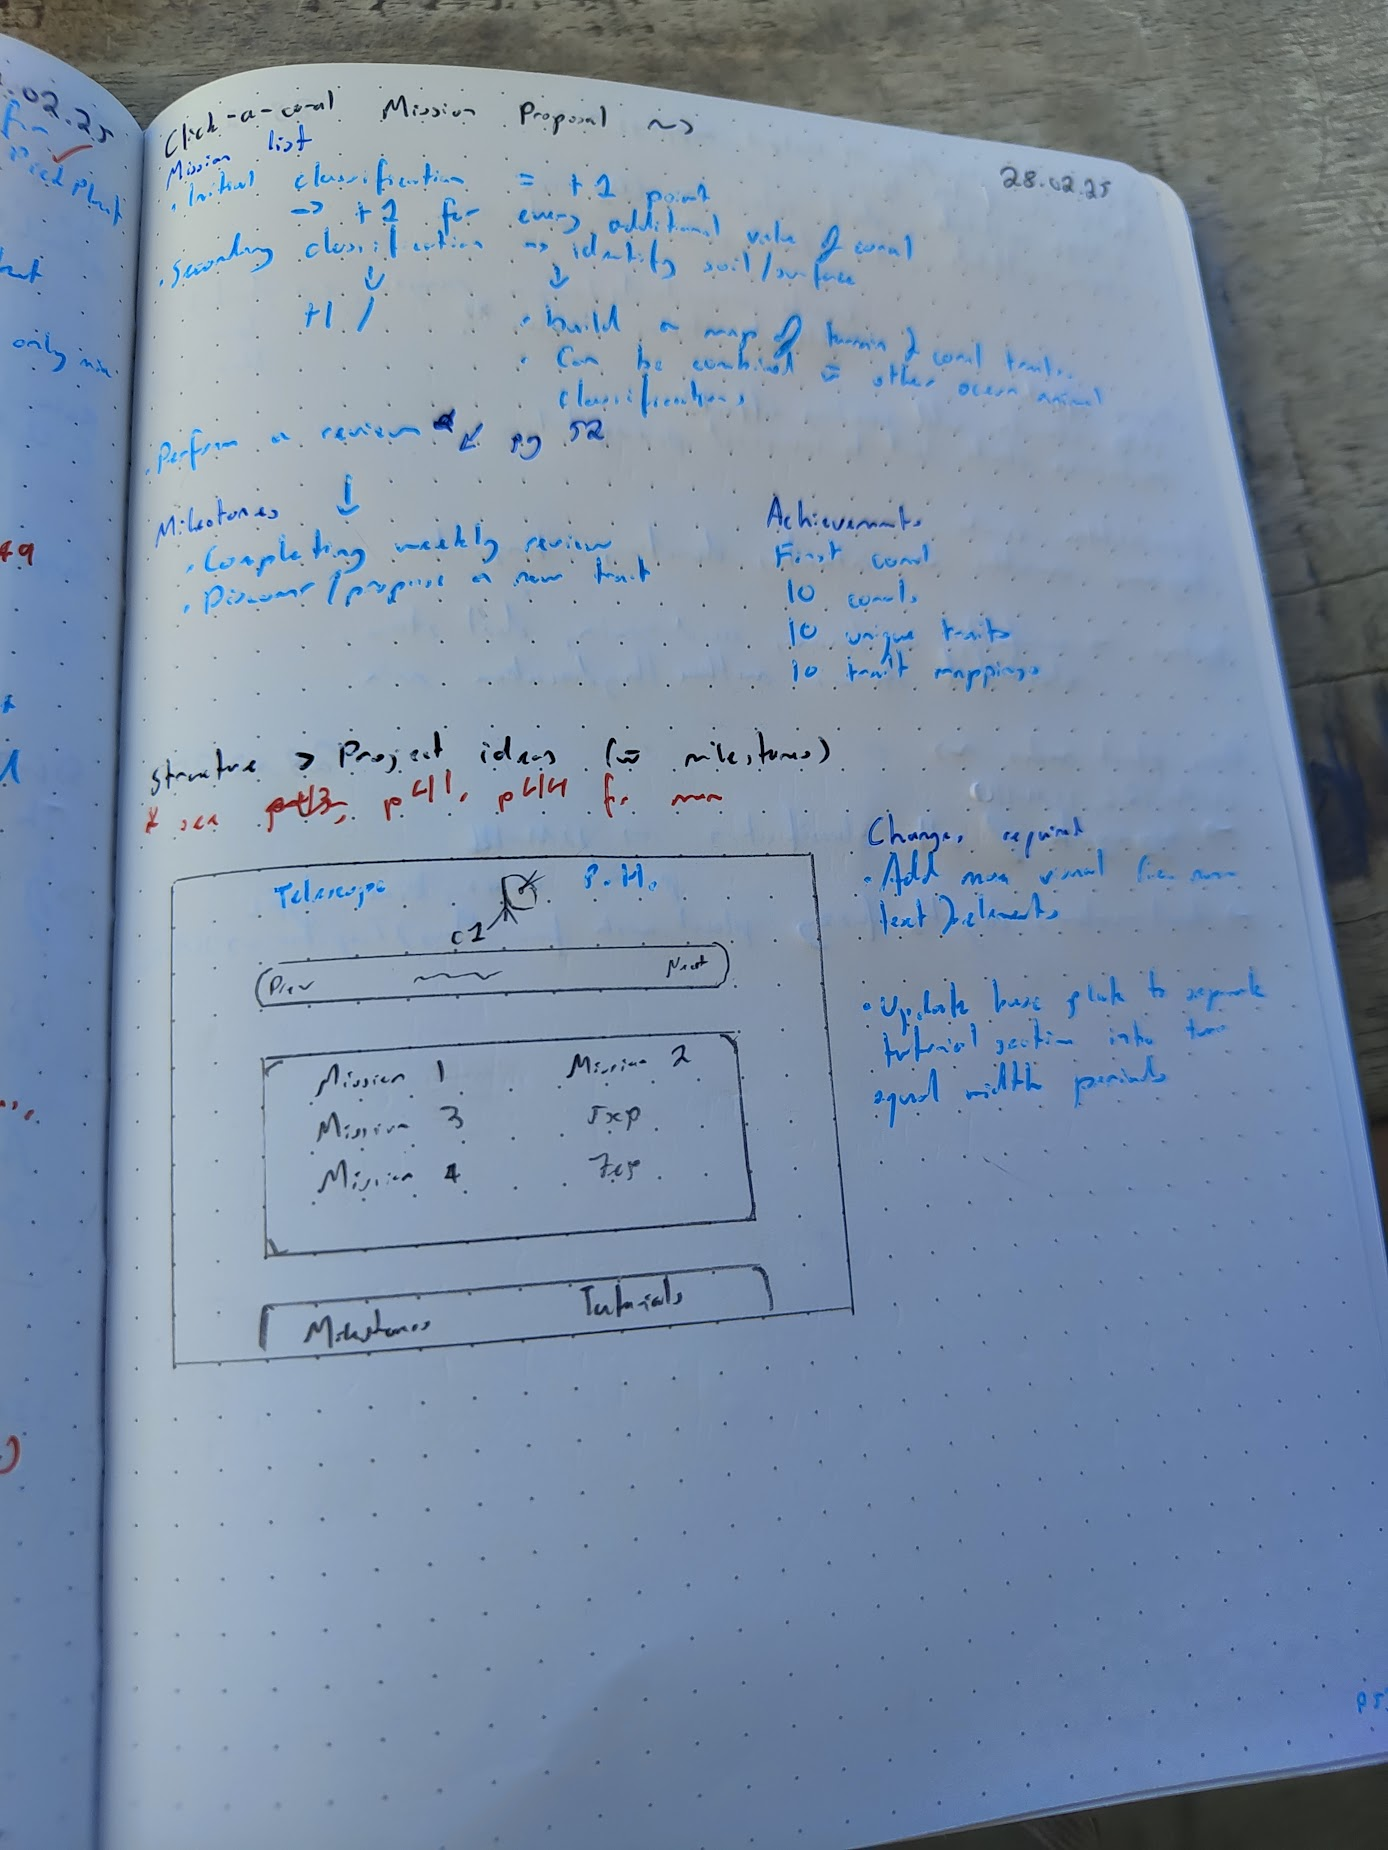 28.02.25
Click-a-coral Mission Proposal ~>
Mission list
• Initial classification = +1 point
→ +1 for every additional value of coral
• Secondary classification → identify soil/surface
+1 /
• build a map of terrain & coral traits.
• Can be combined = other ocean animal
classifications
• Perform a review ↙ pg 52
Milestones
• Completing weekly review
• Discover/propose a new trait
Achievements
First coral
10 corals
10 unique traits
10 trait mappings
Structure > Project ideas (w milestones)
* see p43, p41, p44 for more
Telescope P.H.
c1
Prev Next
Mission 1 Mission 2
Mission 3 5xp
Mission 4
Milestones Tutorials
Changes required
• Add more visual (i.e. non
text) elements
• Update base plate to separate
tutorial section into two
equal width periods